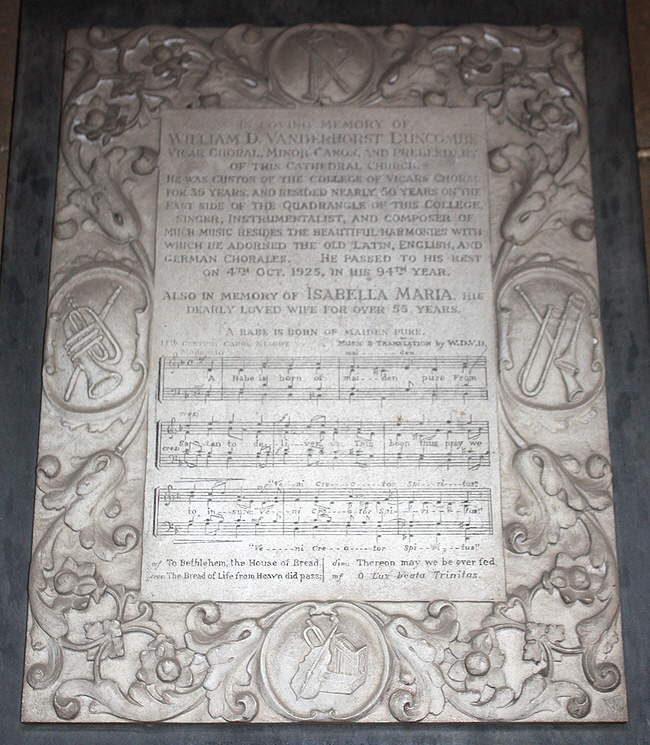 IN LOVING MEMORY OF
WILLIAM D. VANDERHORST DUNCOMBE
VICAR CHORAL, MINOR CANON, AND PREBENDARY
OF THIS CATHEDRAL CHURCH.
HE WAS CUSTOS OF THE COLLEGE OF VICARS CHORAL
FOR 39 YEARS, AND RESIDED NEARLY 50 YEARS ON THE
EAST SIDE OF THE QUADRANGLE OF THIS COLLEGE.
SINGER, INSTRUMENTALIST, AND COMPOSER OF
MUCH MUSIC BESIDES THE BEAUTIFUL HARMONIES WITH
WHICH HE ADORNED THE OLD LATIN, ENGLISH, AND
GERMAN CHORALES. HE PASSED TO HIS REST
ON 4TH OCT. 1925, IN HIS 94TH YEAR.
ALSO IN MEMORY OF ISABELLA MARIA, HIS
DEARLY LOVED WIFE FOR OVER 55 YEARS.
A BABE IS BORN OF MAIDEN PURE.
CENTURY CAROL MELODY MUSIC & TRANSLATION BY W.D.V.D.
Moderato mai - - den
A Babe is born of mai - - - den pure From
Sa - tan to de - li - ver us. This boon thus pray we
cres:
"Ve - ni Cre - a - tor Spi - ri - tus"
to in - sure "Ve - ni Cre - a - tor Spi - ri - tus"
"Ve - - - ni Cre - - a - - - tor Spi - ri - tus"
mf To Bethlehem, the House of Bread, dim: Thereon may we be ever fed,
cres: The Bread of Life from Heav'n did pass; mf O Lux beata Trinitas.